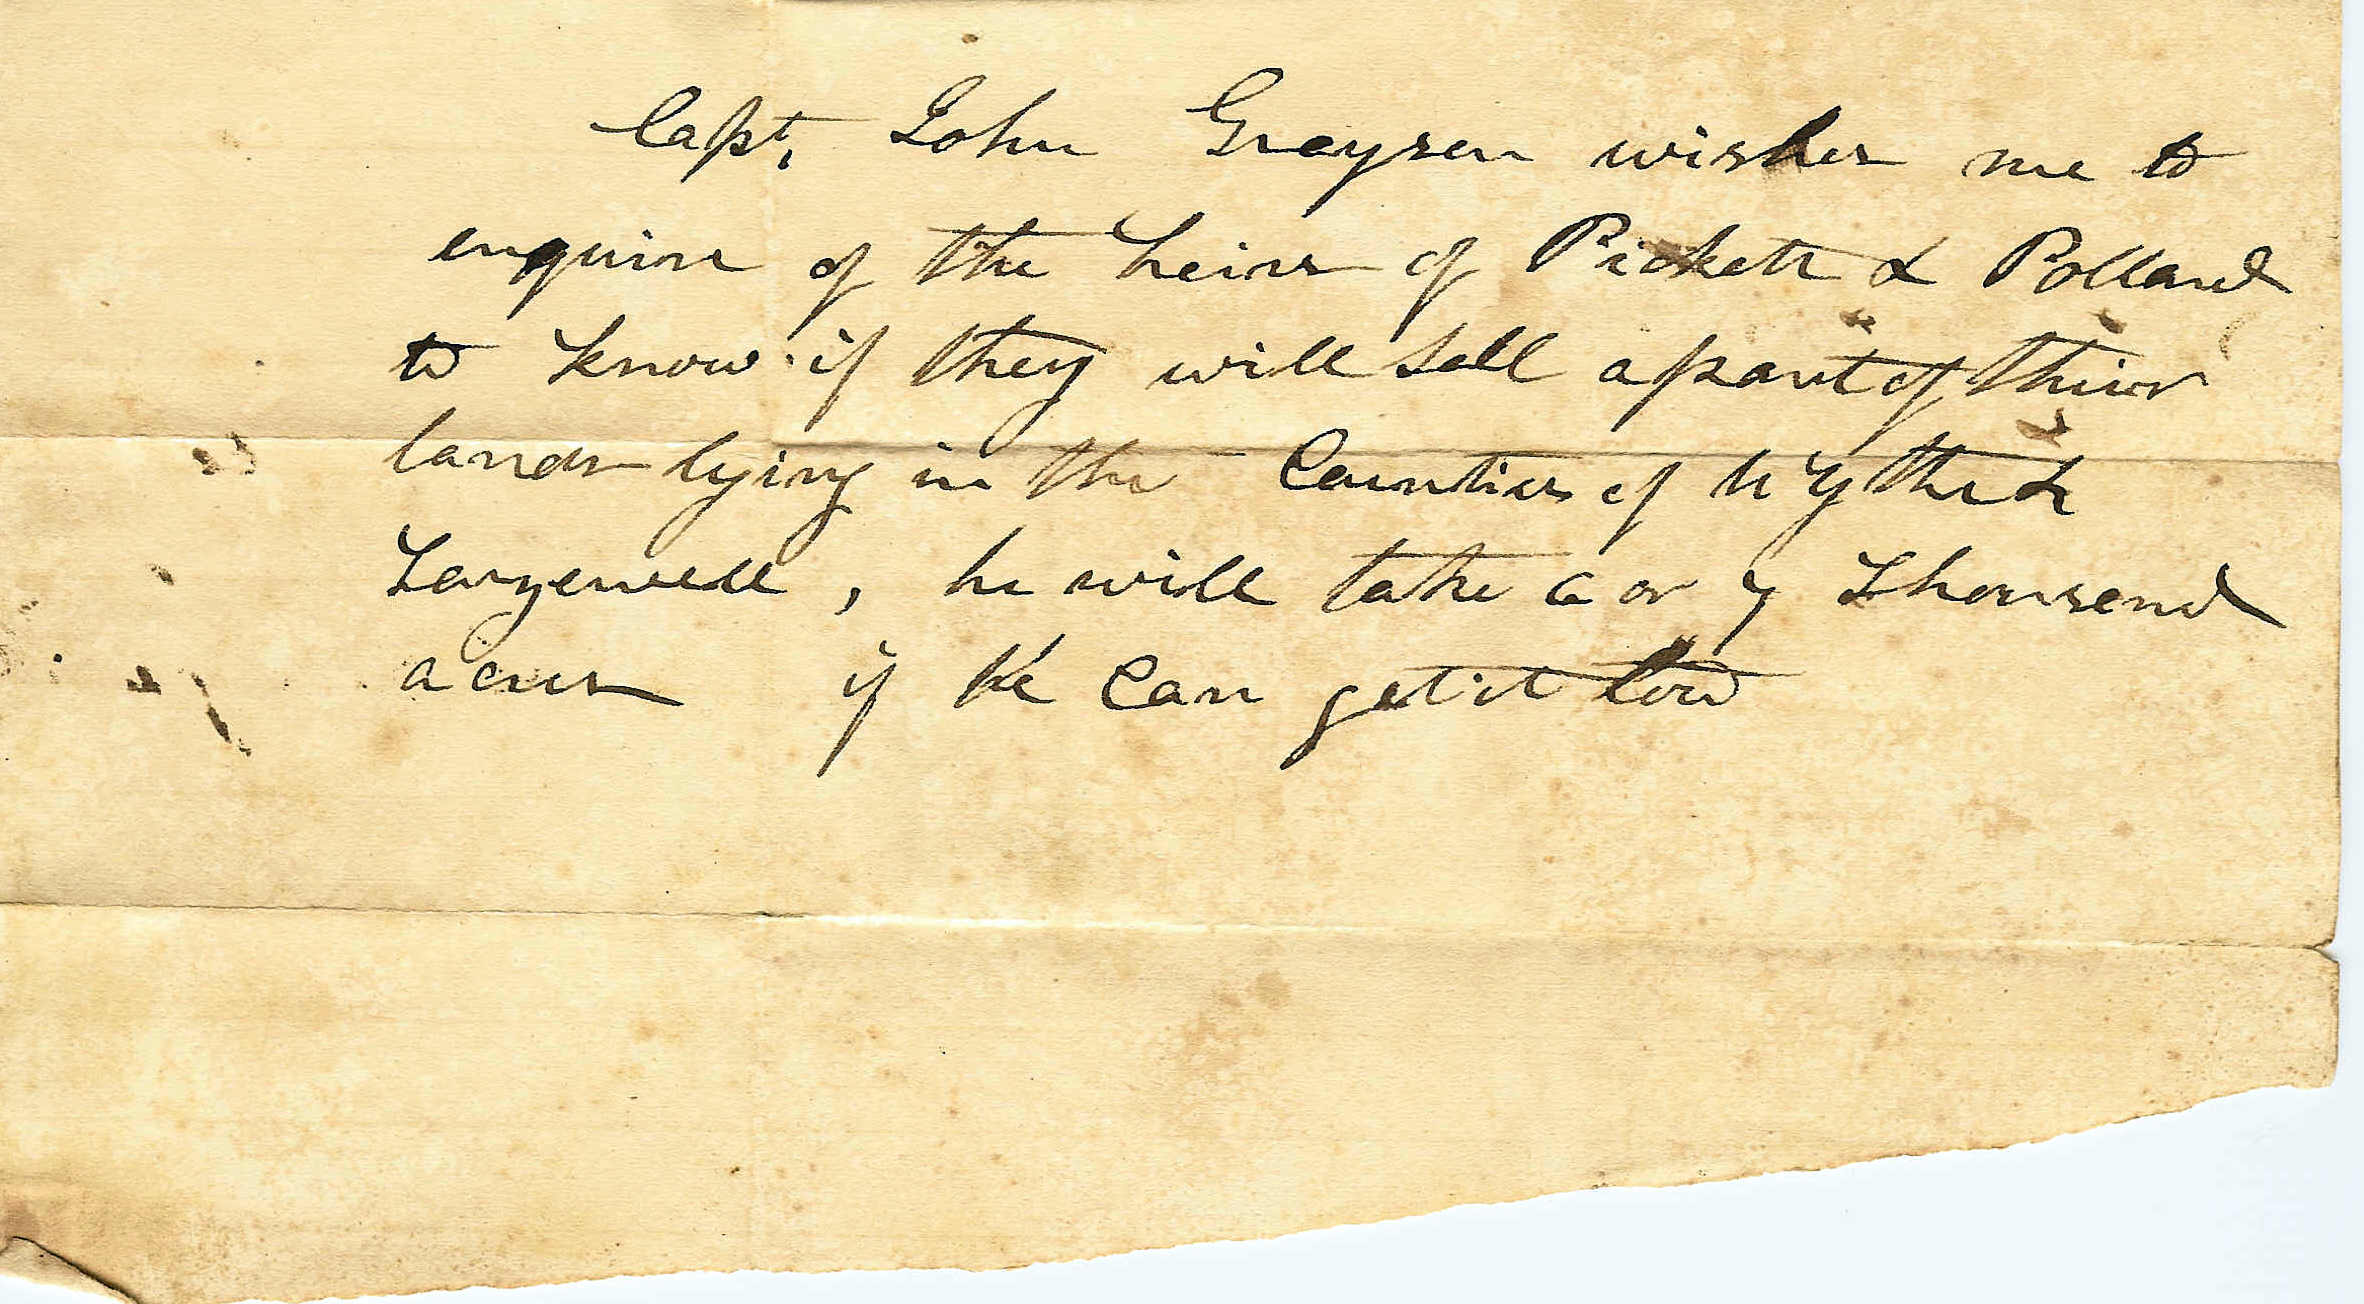 Capt, John Graysen wishes me to
enquire of the heirs of Picketts & Pollard
to know if they will sell a part of thier
lands lying in the Counties of Wythe &
Tazewell, he will take 6 or 7 Thousend
acres if he Can get it low